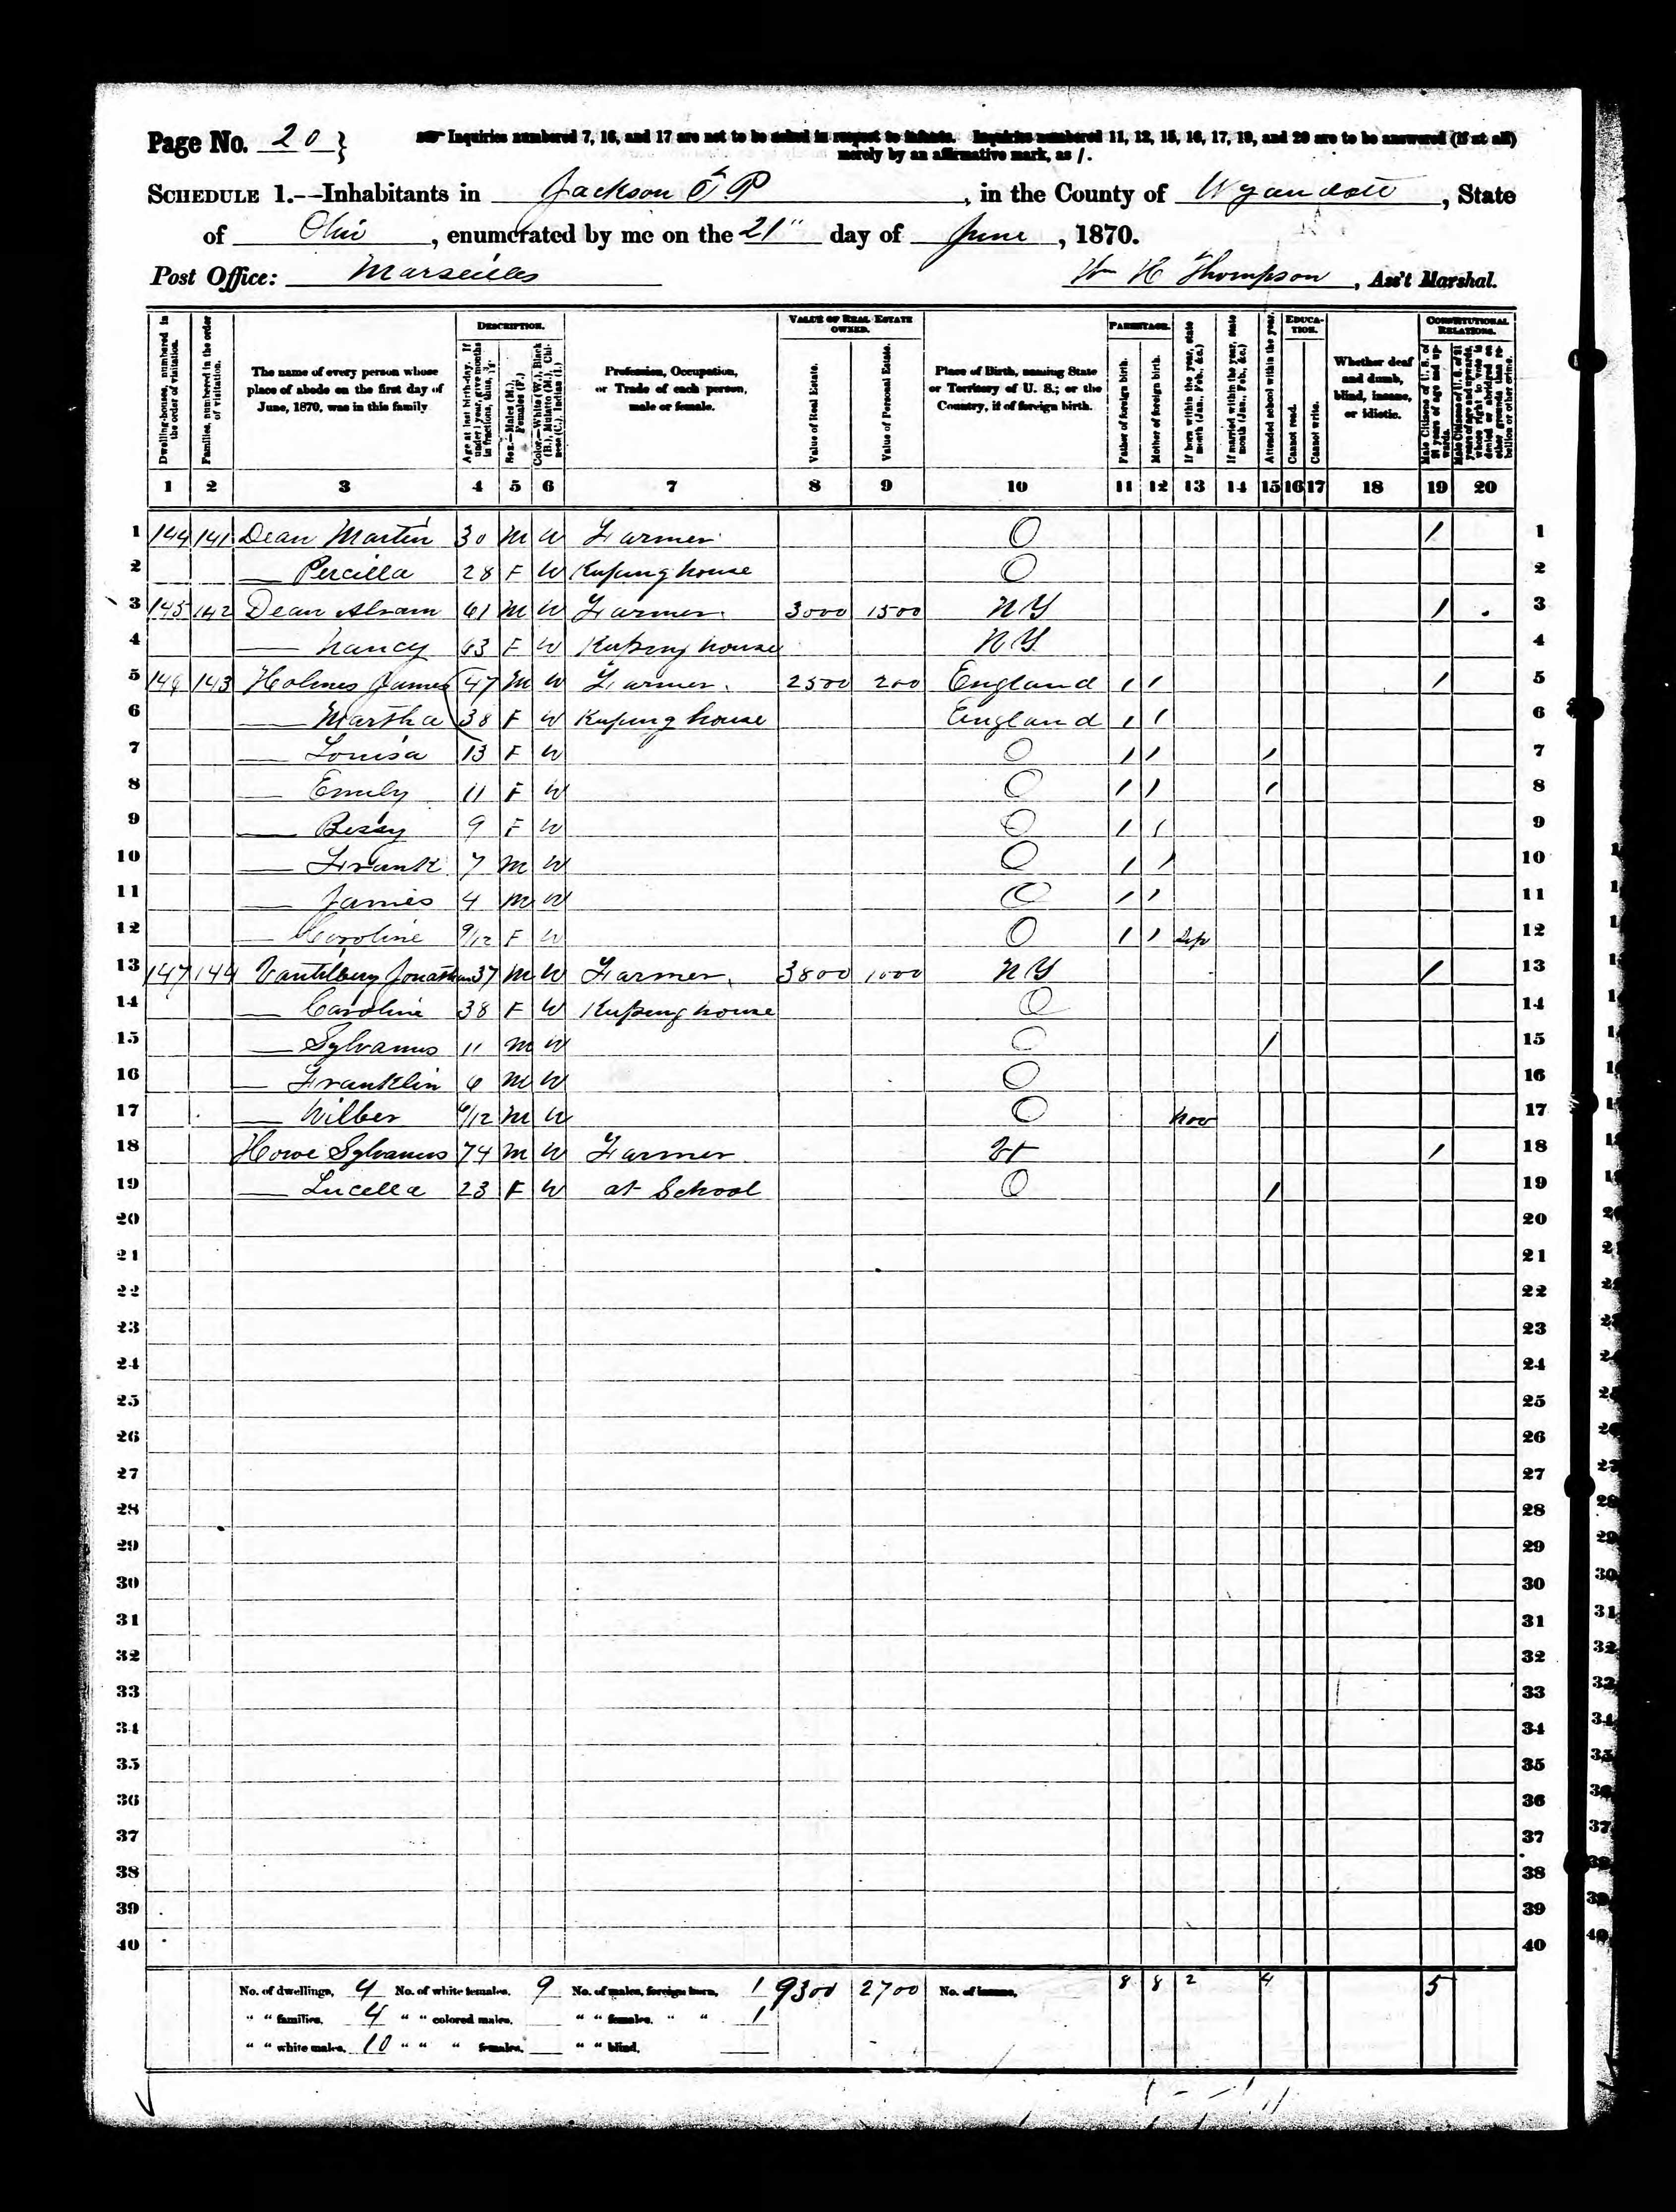 Page No. 20
Inquiries numbered 7, 16, and 17 are not to be asked in respect to infants. Inquiries numbered 11, 12, 15, 16, 17, 19, and 20 are to be answered (if at all)
merely by an affirmative mark, as /.
SCHEDULE 1.—Inhabitants in Jackson T.P, in the County of Wyandott, State
of Ohio, enumerated by me on the 21" day of June, 1870.
Post Office: Marseilles
Wm H Thompson, Ass't Marshal.
Dwelling-houses, numbered in the order of visitation.
Families, numbered in the order of visitation.
The name of every person whose place of abode on the first day of June, 1870, was in this family
DESCRIPTION.
Age at last birth-day. If under 1 year, give months in fractions, thus, 3/12.
Sex.—Males (M.), Females (F.)
Color.—White (W.), Black (B.), Mulatto (M.), Chinese (C.), Indian (I.)
Profession, Occupation, or Trade of each person, male or female.
VALUE OF REAL ESTATE OWNED.
Value of Real Estate.
Value of Personal Estate.
Place of Birth, naming State or Territory of U. S.; or the Country, if of foreign birth.
PARENTAGE.
Father of foreign birth.
Mother of foreign birth.
If born within the year, state month (Jan., Feb., &c.)
If married within the year, state month (Jan., Feb., &c.)
Attended school within the year.
EDUCATION.
Cannot read.
Cannot write.
Whether deaf and dumb, blind, insane, or idiotic.
CONSTITUTIONAL RELATIONS.
Male Citizens of U. S. of 21 years of age and upwards.
Male Citizens of U. S. of 21 years of age and upwards, whose right to vote is denied or abridged on other grounds than rebellion or other crime.
1 2 3 4 5 6 7 8 9 10 11 12 13 14 15 16 17 18 19 20
1 144 141 Dean Martin 30 M W Farmer O / 1
2 — Percilla 28 F W Keeping house O 2
3 145 142 Dean Abram 61 M W Farmer 3000 1500 N Y / 3
4 — Nancy 63 F W Keeping house N Y 4
5 146 143 Holmes James 47 M W Farmer 2500 200 England / / / 5
6 — Martha 38 F W Keeping house England / / 6
7 — Louisa 13 F W O / / / 7
8 — Emily 11 F W O / / / 8
9 — Bessy 9 F W O / / 9
10 — Frank 7 M W O / / 10
11 — James 4 M W O / / 11
12 — Caroline 9/12 F W O / / Sep 12
13 147 144 Vantilbury Jonathan 37 M W Farmer 3800 1000 N Y / 13
14 — Caroline 38 F W Keeping house O 14
15 — Sylvanus 11 M W O / 15
16 — Franklin 6 M W O 16
17 — Wilber 6/12 M W O Nov 17
18 Howe Sylvanus 74 M W Farmer Vt / 18
19 — Lucella 23 F W at School O / 19
20 20
21 21
22 22
23 23
24 24
25 25
26 26
27 27
28 28
29 29
30 30
31 31
32 32
33 33
34 34
35 35
36 36
37 37
38 38
39 39
40 40
No. of dwellings, 4 No. of white females, 9 No. of males, foreign born, 1 9300 2700 No. of insane, 8 8 2 4 5
" " families, 4 " " colored males, " " females, " " 1
" " white males, 10 " " " females, " " blind,